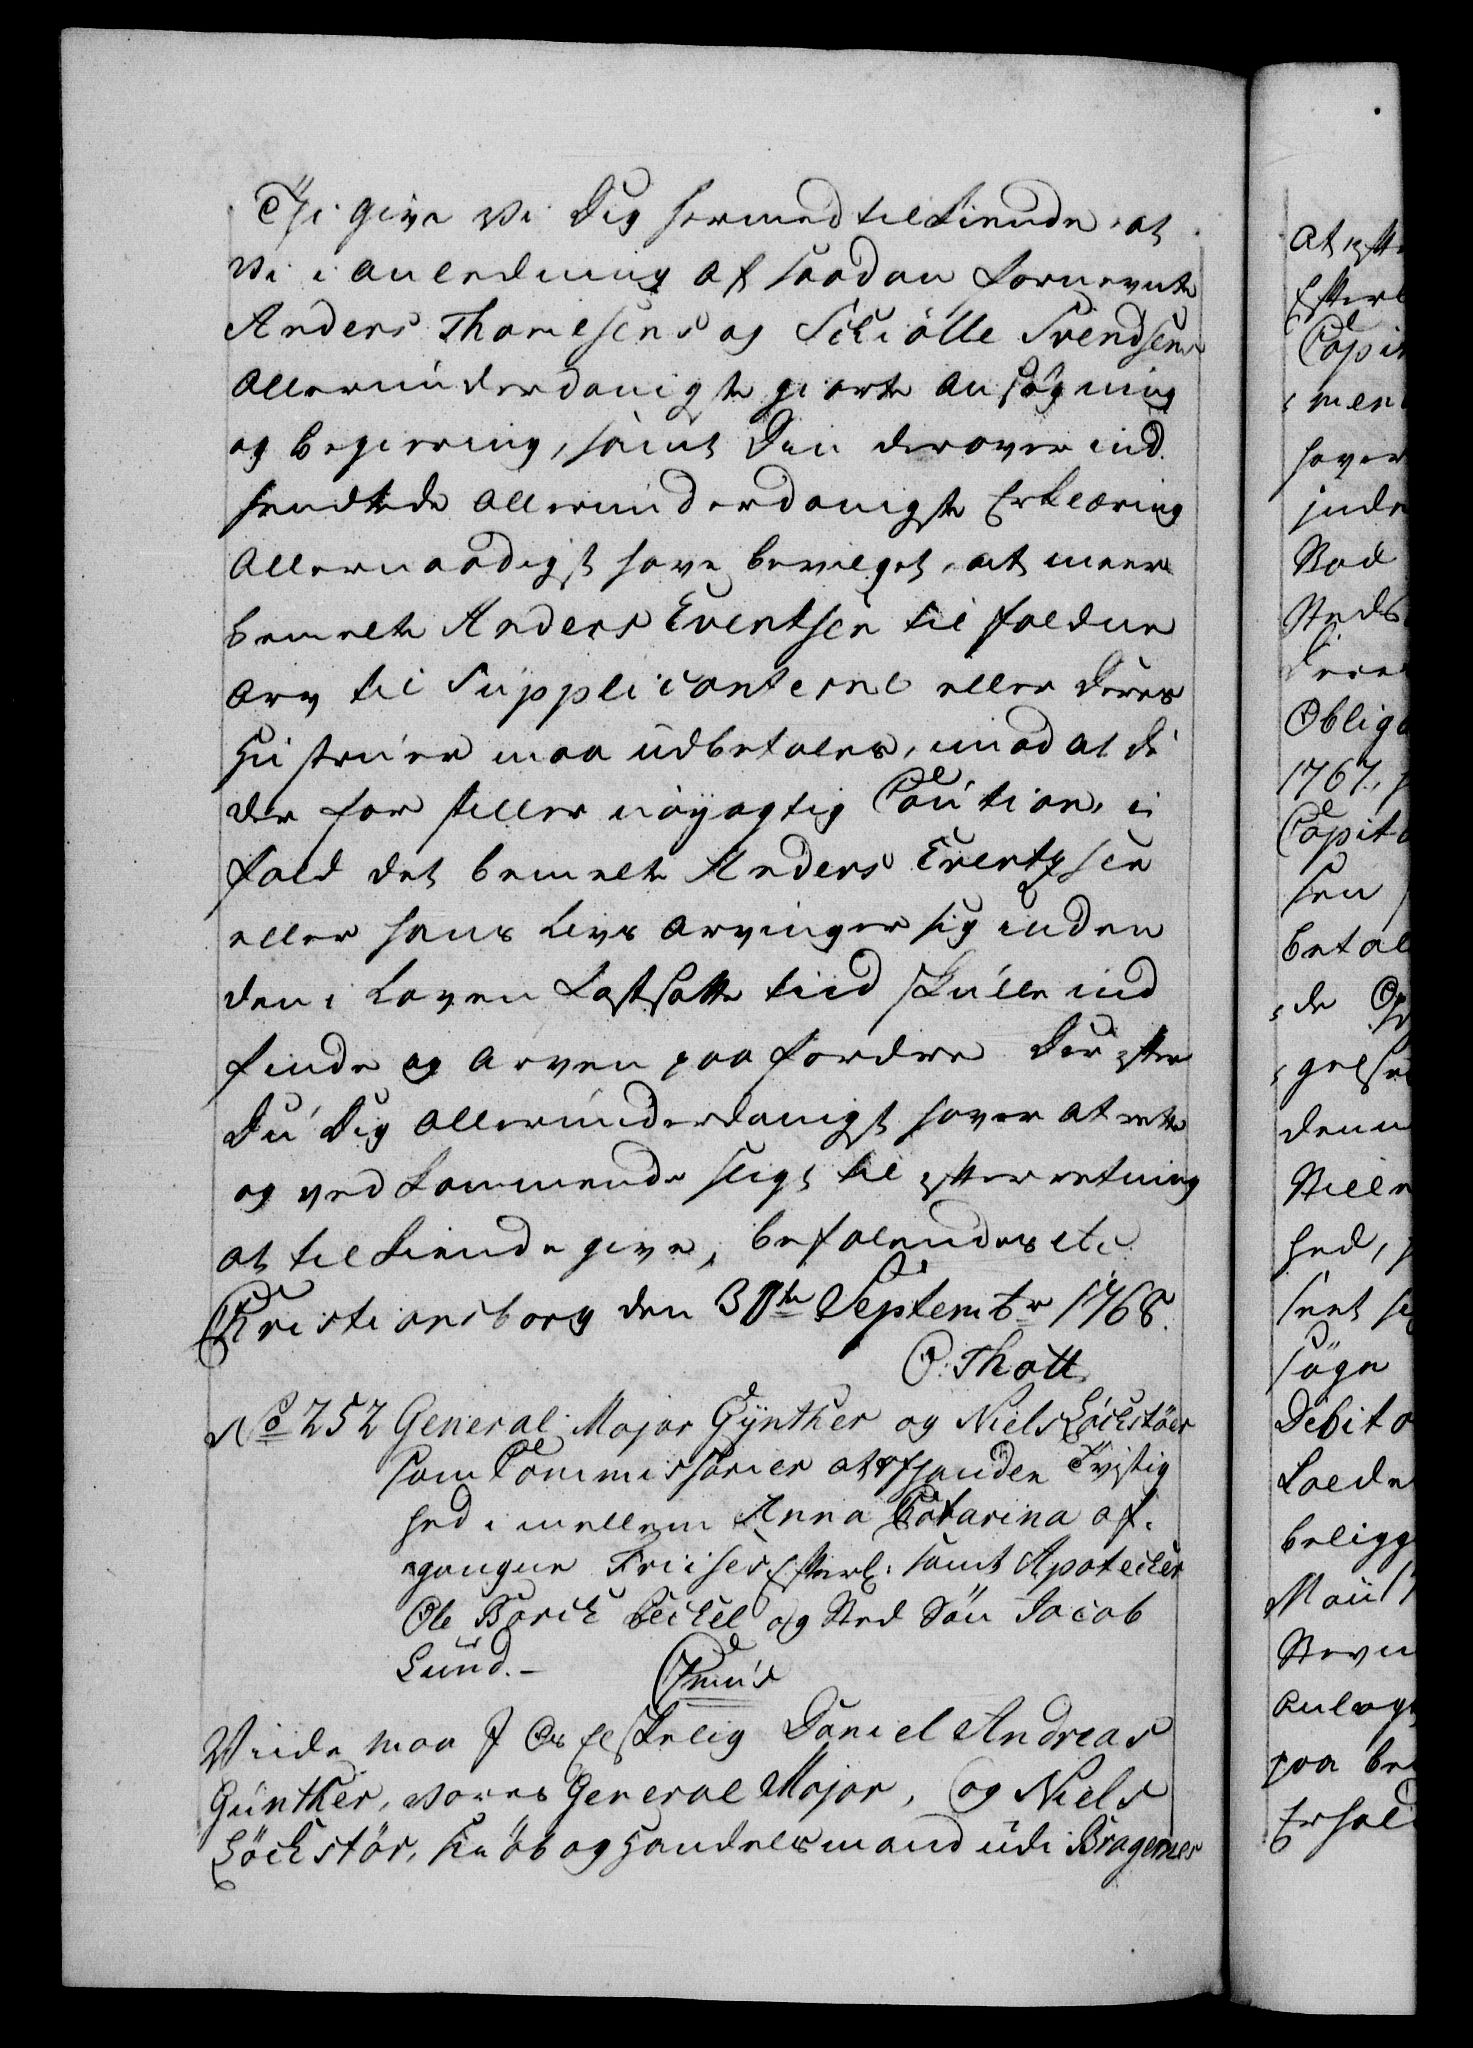 Thi give Vi Dig hermed tilkiende, at
Vi i anledning af saadan fornevnte
Anders Thomesens og Schiölle Svendsens
allerunderdanigste giorte Ansøgning
og begiering, samt Din derover ind
sendtede allerunderdanigste Erklæring
allernaadigst have bevilget, at meer
bemelte Anders Evertsen til faldne
arv til Supplicanterne eller deres
Hustruer maa udbetales, imod at de
der for stiller nöyagtig Caution, i
fald det bemelte Anders Evertzsen
eller hans Livs arvinger sig inden
den i Loven fastsatte tiid skulle ind
finde og arven paa fordre. Der efter
Du Dig allerunderdanigst haver at rette
og ved kommende sligt til efterretning
at tilkiende give, befalendes etc.
Christiansborg den 30te Septembr 1768.
O. Thott
No 252 General Major Gynther og Niels Löchstöer
som Commissarier at afhandle Tvistig
hed imellem Anna Catarina af.
gangne Friises Efterl: samt Apotecker
Ole Borch Beckel og Sted Søn Jacob
Lund. –
Vide maa I Os elskelig Daniel Andreas
Günther, vores General Major, og Niels
Löchstör, Kiöb og Handelsmand udi Bragernes
At efte
Efterl
Capit
men
haver
inde
Stæd
Steds
Deres
Oblig
1767,
Capita
sen
betal
de
gelse
denn
Stille
hed,
sent
søge
Debito
kalde
belig
Nevn
anlag
paa be
Erhol